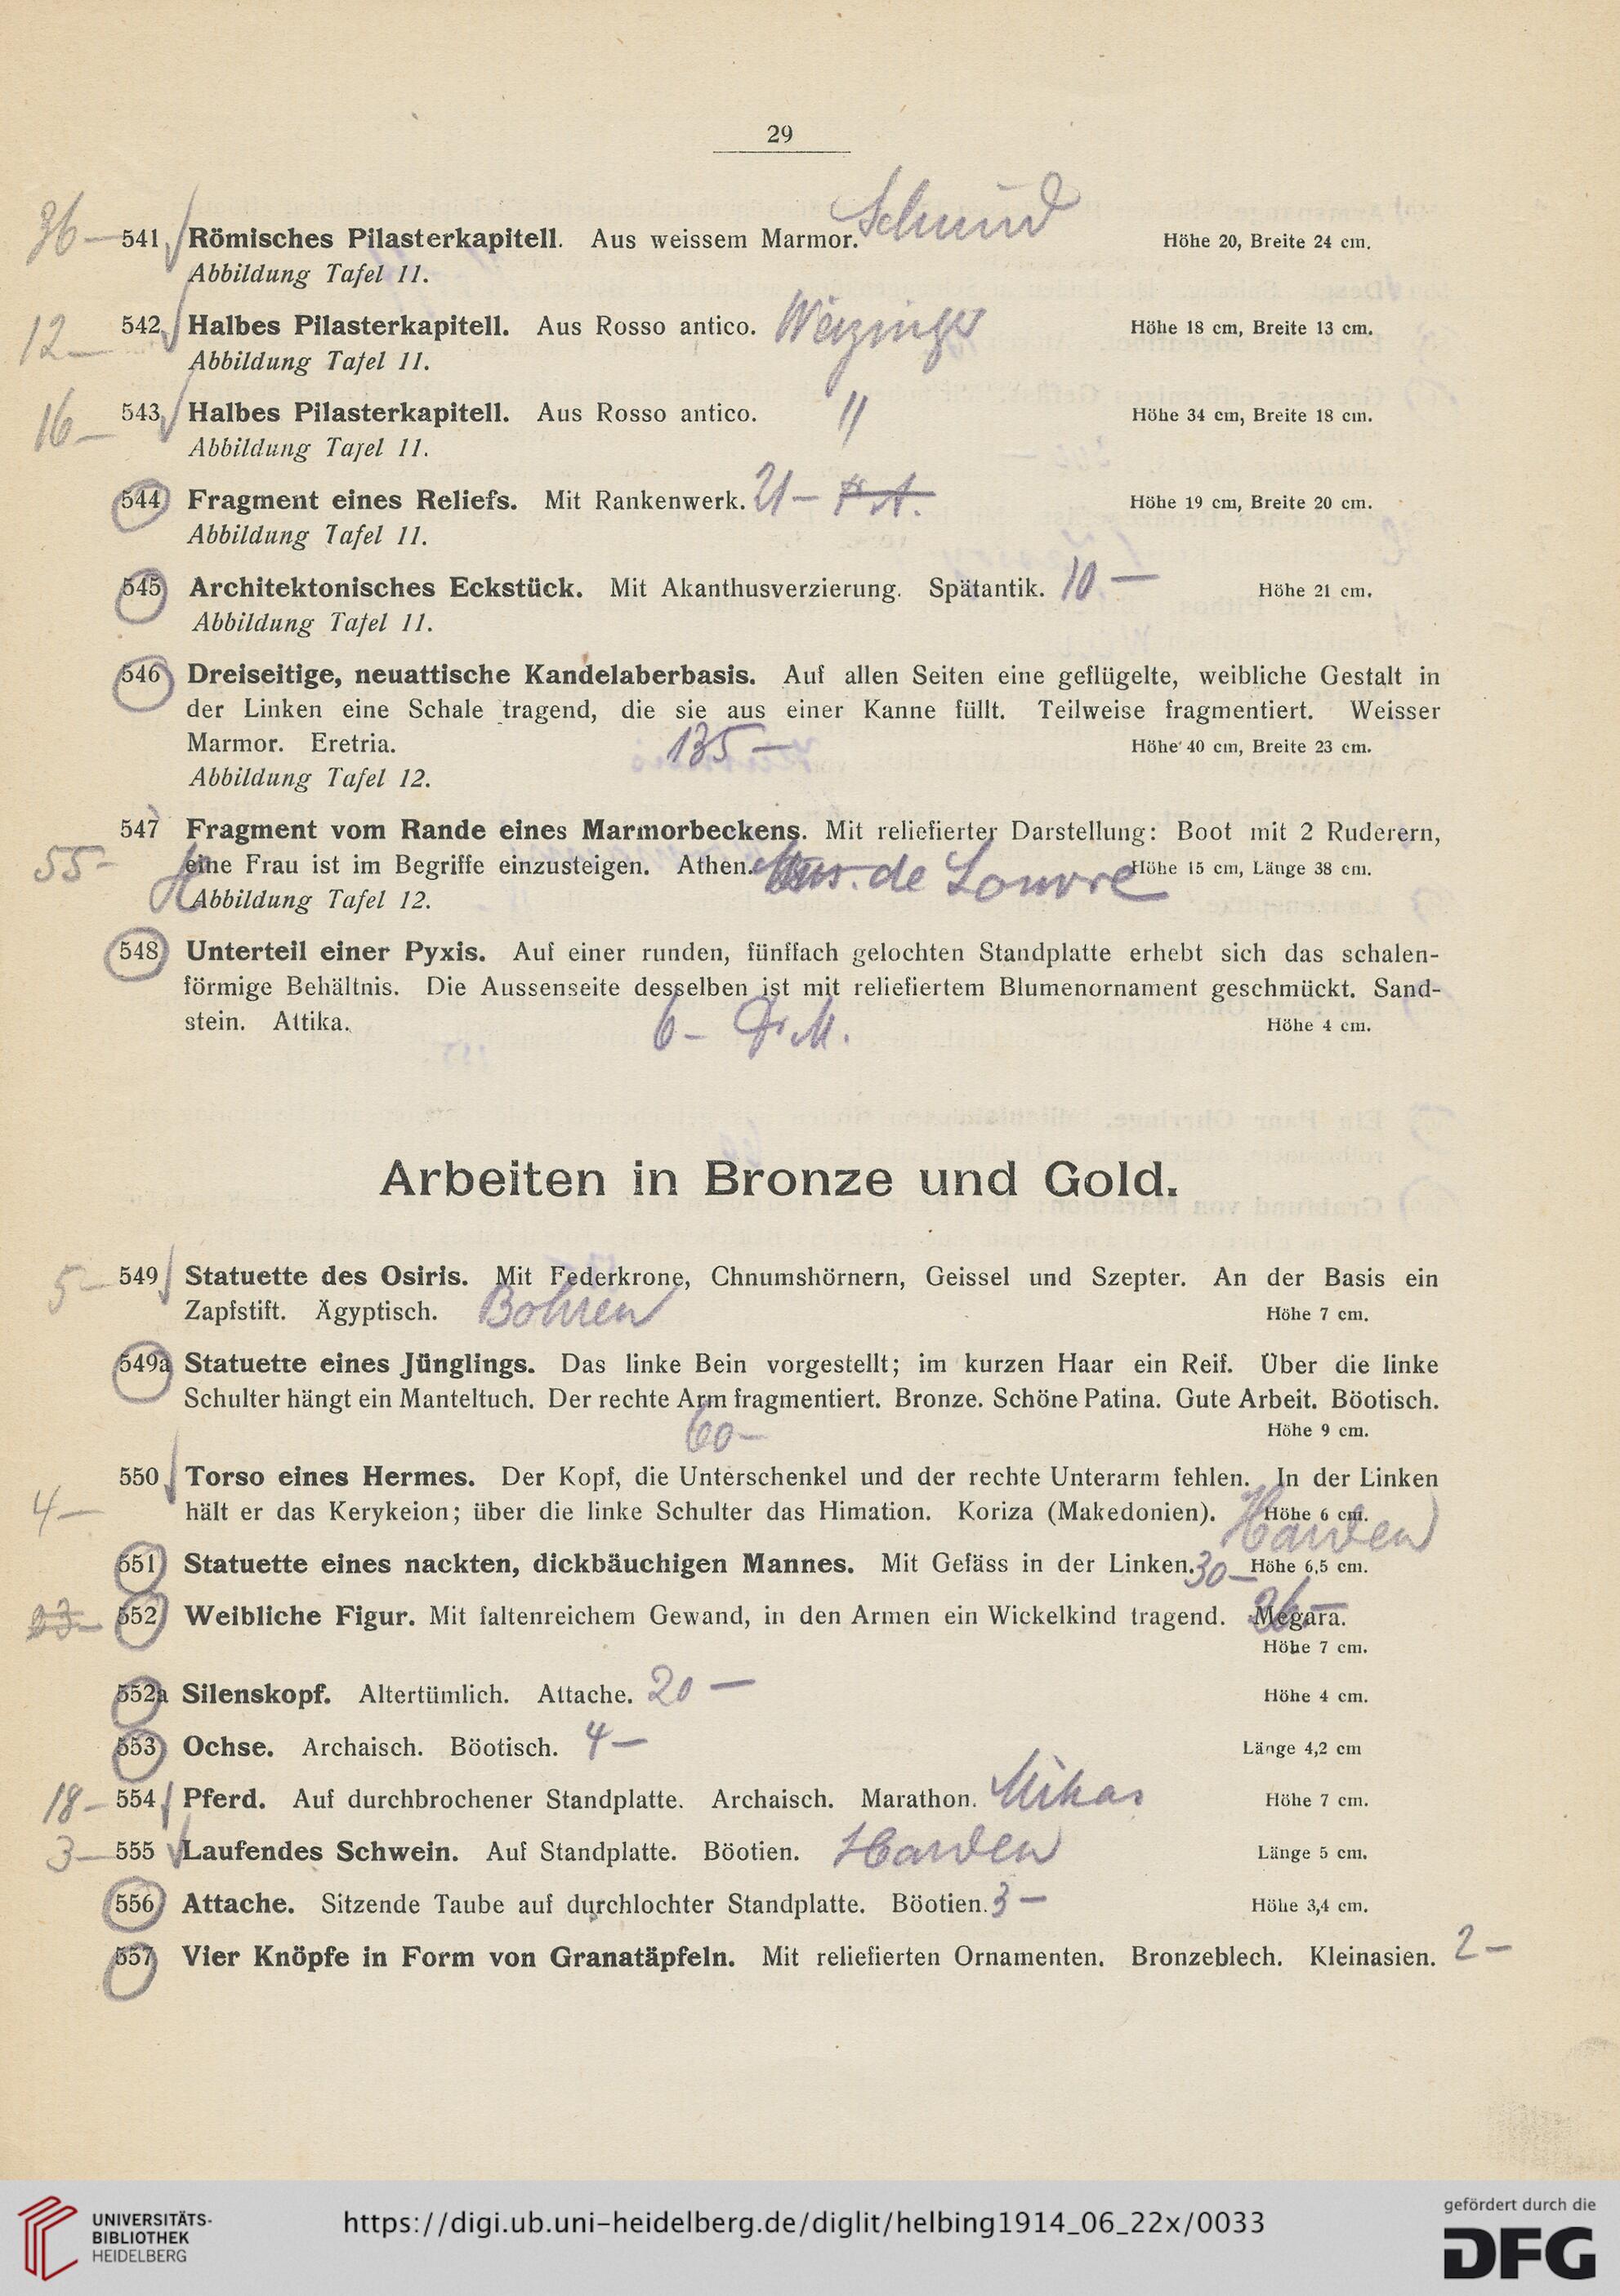 29
36 — 541 Römisches Pilasterkapitell. Aus weissem Marmor. Schmid Höhe 20, Breite 24 cm.
Abbildung Tafel 11.
12 — 542 Halbes Pilasterkapitell. Aus Rosso antico. Höhe 18 cm, Breite 13 cm.
Abbildung Tafel 11.
16 — 543 Halbes Pilasterkapitell. Aus Rosso antico. " Höhe 34 cm, Breite 18 cm.
Abbildung Tafel 11.
544 Fragment eines Reliefs. Mit Rankenwerk. 21 — Höhe 19 cm, Breite 20 cm.
Abbildung Tafel 11.
545 Architektonisches Eckstück. Mit Akanthusverzierung. Spätantik. 10 — Höhe 21 cm.
Abbildung Tafel 11.
546 Dreiseitige, neuattische Kandelaberbasis. Auf allen Seiten eine geflügelte, weibliche Gestalt in
der Linken eine Schale tragend, die sie aus einer Kanne füllt. Teilweise fragmentiert. Weisser
Marmor. Eretria. 135 — Höhe 40 cm, Breite 23 cm.
Abbildung Tafel 12.
547 Fragment vom Rande eines Marmorbeckens. Mit reliefierter Darstellung: Boot mit 2 Ruderern,
55 - eine Frau ist im Begriffe einzusteigen. Athen. Mus. de Louvre Höhe 15 cm, Länge 38 cm.
Abbildung Tafel 12.
548 Unterteil einer Pyxis. Auf einer runden, fünffach gelochten Standplatte erhebt sich das schalen-
förmige Behältnis. Die Aussenseite desselben ist mit reliefiertem Blumenornament geschmückt. Sand-
stein. Attika. 6 - Dr. M. Höhe 4 cm.
Arbeiten in Bronze und Gold.
5 — 549 Statuette des Osiris. Mit Federkrone, Chnumshörnern, Geissel und Szepter. An der Basis ein
Zapfstift. Ägyptisch. Bohren Höhe 7 cm.
549a Statuette eines Jünglings. Das linke Bein vorgestellt; im kurzen Haar ein Reif. Über die linke
Schulter hängt ein Manteltuch. Der rechte Arm fragmentiert. Bronze. Schöne Patina. Gute Arbeit. Böotisch.
60 — Höhe 9 cm.
550 Torso eines Hermes. Der Kopf, die Unterschenkel und der rechte Unterarm fehlen. In der Linken
4 — hält er das Kerykeion; über die linke Schulter das Himation. Koriza (Makedonien). Höhe 6 cm. Harden
551 Statuette eines nackten, dickbäuchigen Mannes. Mit Gefäss in der Linken. 30 — Höhe 6,5 cm.
23 — 552 Weibliche Figur. Mit faltenreichem Gewand, in den Armen ein Wickelkind tragend. Megara. 26 —
Höhe 7 cm.
552a Silenskopf. Altertümlich. Attache. 20 — Höhe 4 cm.
553 Ochse. Archaisch. Böotisch. 4 — Länge 4,2 cm
18 — 554 Pferd. Auf durchbrochener Standplatte. Archaisch. Marathon. Mikas Höhe 7 cm.
3 — 555 Laufendes Schwein. Auf Standplatte. Böotien. Harden Länge 5 cm.
556 Attache. Sitzende Taube auf durchlochter Standplatte. Böotien. 3 — Höhe 3,4 cm.
557 Vier Knöpfe in Form von Granatäpfeln. Mit reliefierten Ornamenten. Bronzeblech. Kleinasien. 2 —
UNIVERSITÄTS-
BIBLIOTHEK
HEIDELBERG
https://digi.ub.uni-heidelberg.de/diglit/helbing1914_06_22x/0033
gefördert durch die
DFG